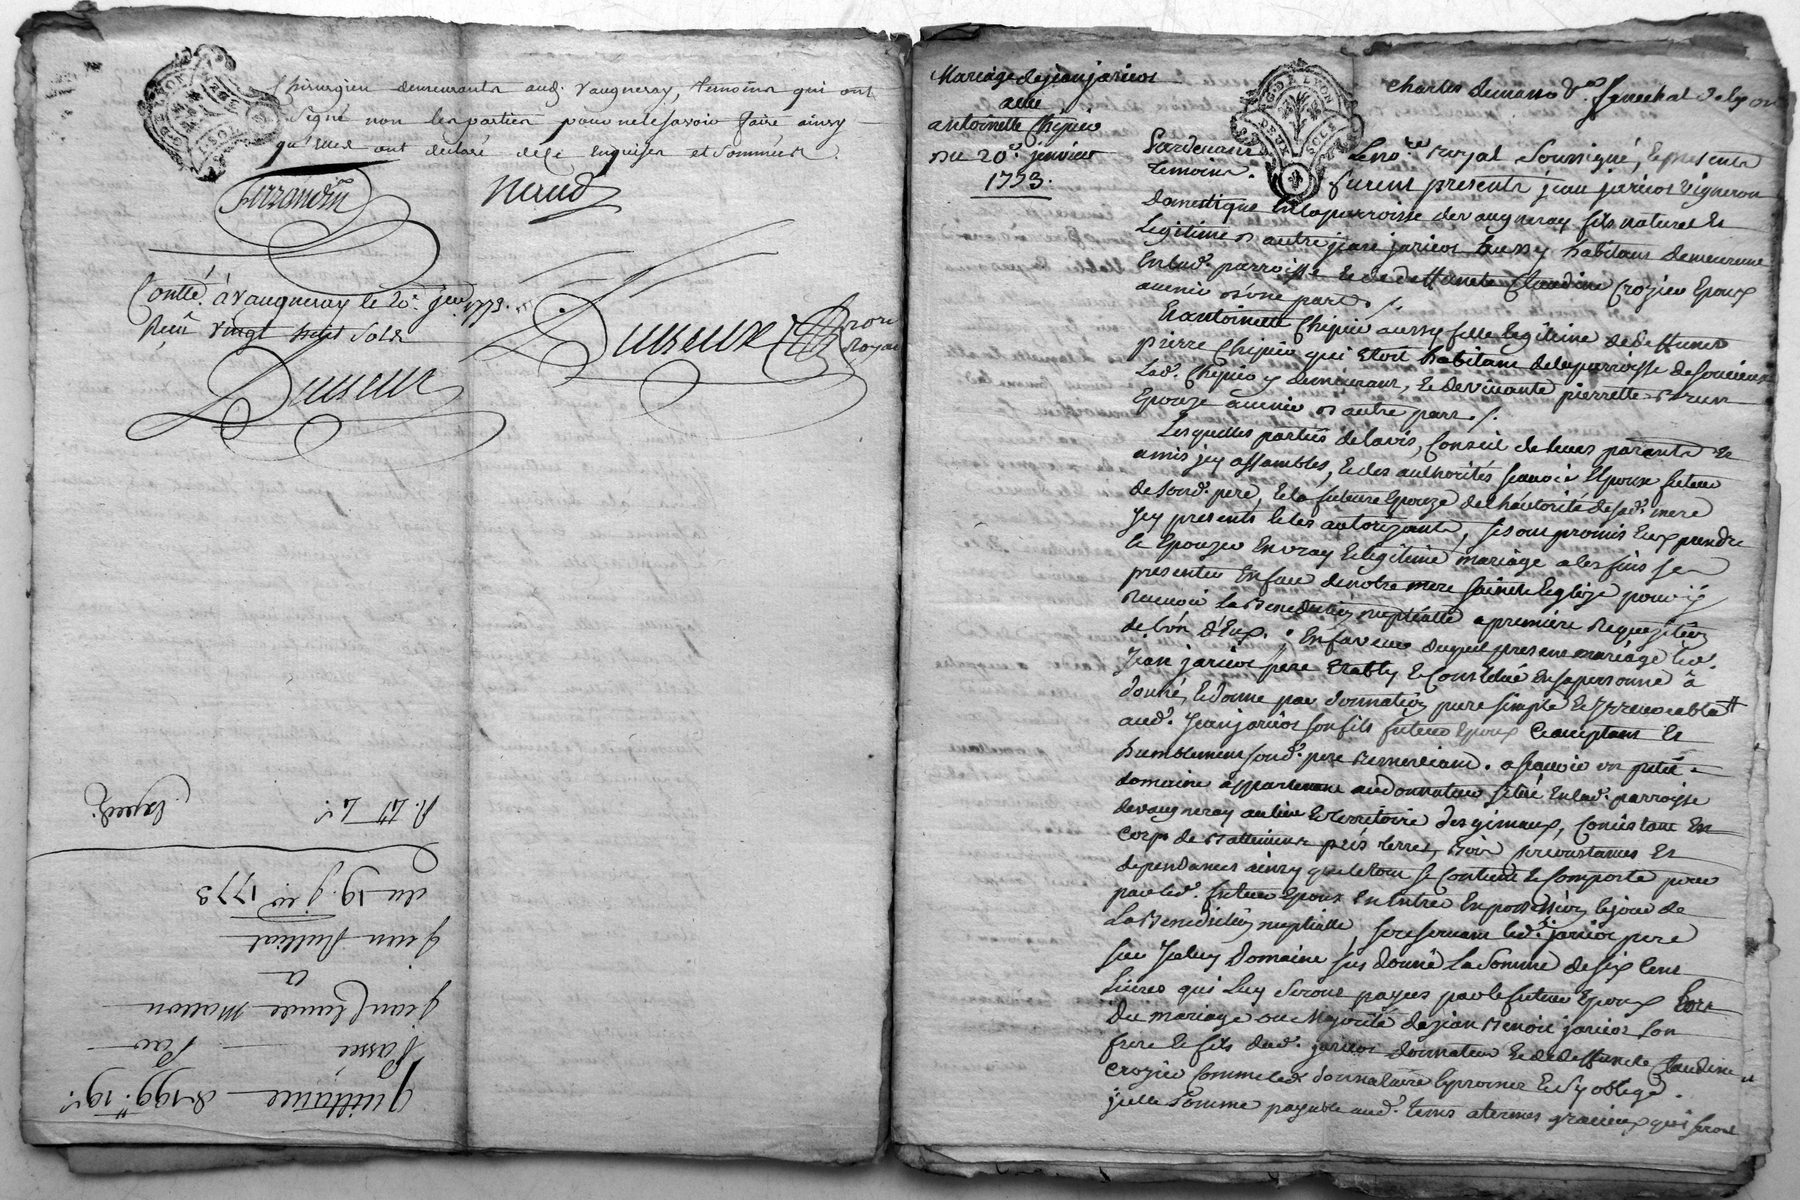 Chirurgien demeurants aud. Vaugneray, temoins qui ont
signé non les parties pour ne le scavoir faire ainsy
qu'elles ont declaré de ce enquises et sommées.
Ferrandin
Naud
Contlé. à Vaugneray le 20e. jeur. 1773.
Reçu vingt huit sols
Dusseux
Dusseux
nore
royal
Quittance de 199.tt 19.s
Passée Par
jean Claude MaLion
a
jean
du 19. jer 1773
R. Lt
Expedié
Mariage de jean jaricot
avec
antoinette Chipier
du 20e. jenvier
1773.
Charles de masso Senechal de Lyon
Pardevant Le no.re Royal Soussigné, et presents
temoins. furent presents jean jaricot vigneron
Domestique en la parroisse de vaugneray fils naturel et
Legitime d'autre jean jaricot aussy habitant demeurant
en lad. parroisse et de deffuncte Claudine Crozier Epoux
avenir d'une part./.
Et antoinette Chipier aussy fille legitime de deffunct
pierre Chipier qui etoit habitant de la parroisse de soucieux
Lad. Chipier y demeurant, et de vivante pierrette Brun
Epouze avenir d'autre part./.
Lesquelles parties de l'avis, Conseil de leurs parants et
amis jcy assamblés, et des authorités scavoir l'Epoux futur
de sond. pere, et la future Epouze de l'hautorité de sad. mere
jcy presents et les autorizants, se sont promis eux prendre
et Epouzer en vray et legitime mariage a les fins se
presenter en face de notre mere sainte Eglize pour y
Recevoir la Benediction nuptialle a premiere Requezition
de l'un d'Eux. En faveur duquel present mariage led.
jean jaricot pere Etably et Constitué en sa personne à
donné, et donne par donnation pure simple et Irrevocable
aud. jean jaricot son fils futur Epoux acceptant et
humblement sond. pere Remerciant. a scavoir un petit
domaine appartenant aud. donnateur situé en lad. parroisse
de vaugneray au lieu et territoire des gimaux, Consistant en
Corps de Battiment prés terres, Bois circonstances et
dependances ainsy que le tout se Contient et Comporte pour
par led. futur Epoux en entrer en possession le jour de
La Benediction nuptialle se reservant led. jaricot pere
sur Jceluy Domaine sus donné La Somme de six Cent
Livres qui Luy seront payees par le futur Epoux Lors
Du mariage ou Majorité de jean Benoit jaricot son
frere et fils dud. jaricot donnateur et de deffuncte Claudine
Crozier Comme led. donnataire le promet et s'y oblige.
jcelle Somme payable aud. tems a termes gracieux qui seront